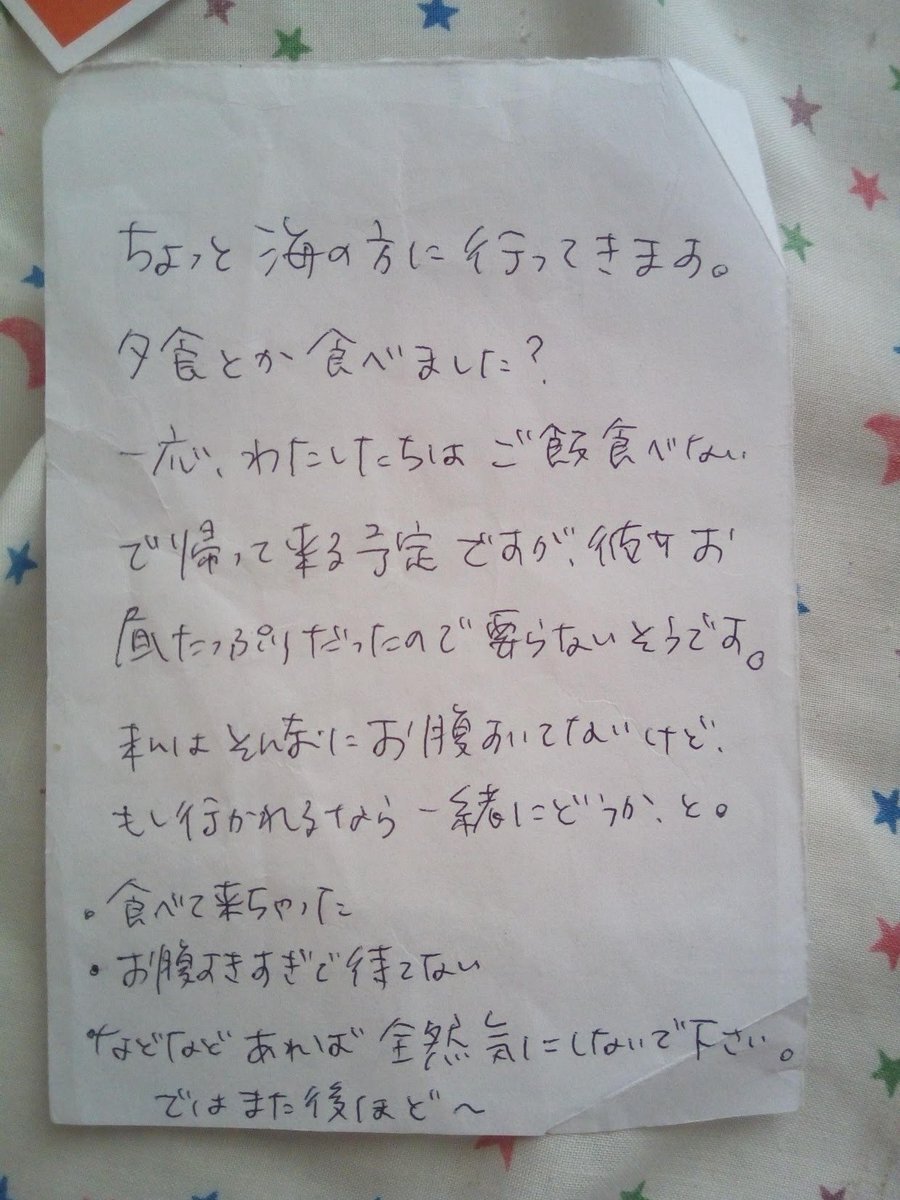 ちょっと海の方に行ってきます。
夕食とか食べました?
一応、わたしたちはご飯食べない
で帰って来る予定ですが、彼女お
昼たっぷりだったので要らないそうです。
私はそんなにお腹すいてないけど、
もし行かれるなら一緒にどうか、と。
・食べて来ちゃった
・お腹すきすぎで待てない
・などなどあれば全然気にしないで下さい。
ではまた後ほど～